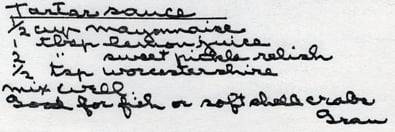 Tartar sauce
1/2 cup mayonnaise
1 tbsp lemon juice
2 " sweet pickle relish
1/2 tsp worcestershire
mix well
Good for fish or soft shell crabs
Gram